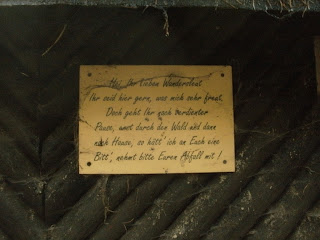 Hei, Ihr lieben Wandersleut
Ihr seid hier gern, was mich sehr freut.
Doch geht Ihr nach verdienter
Pause, umst durch den Wald und dann
nach Hause, so hätt' ich an Euch eine
Bitt', nehmt bitte Euren Abfall mit !